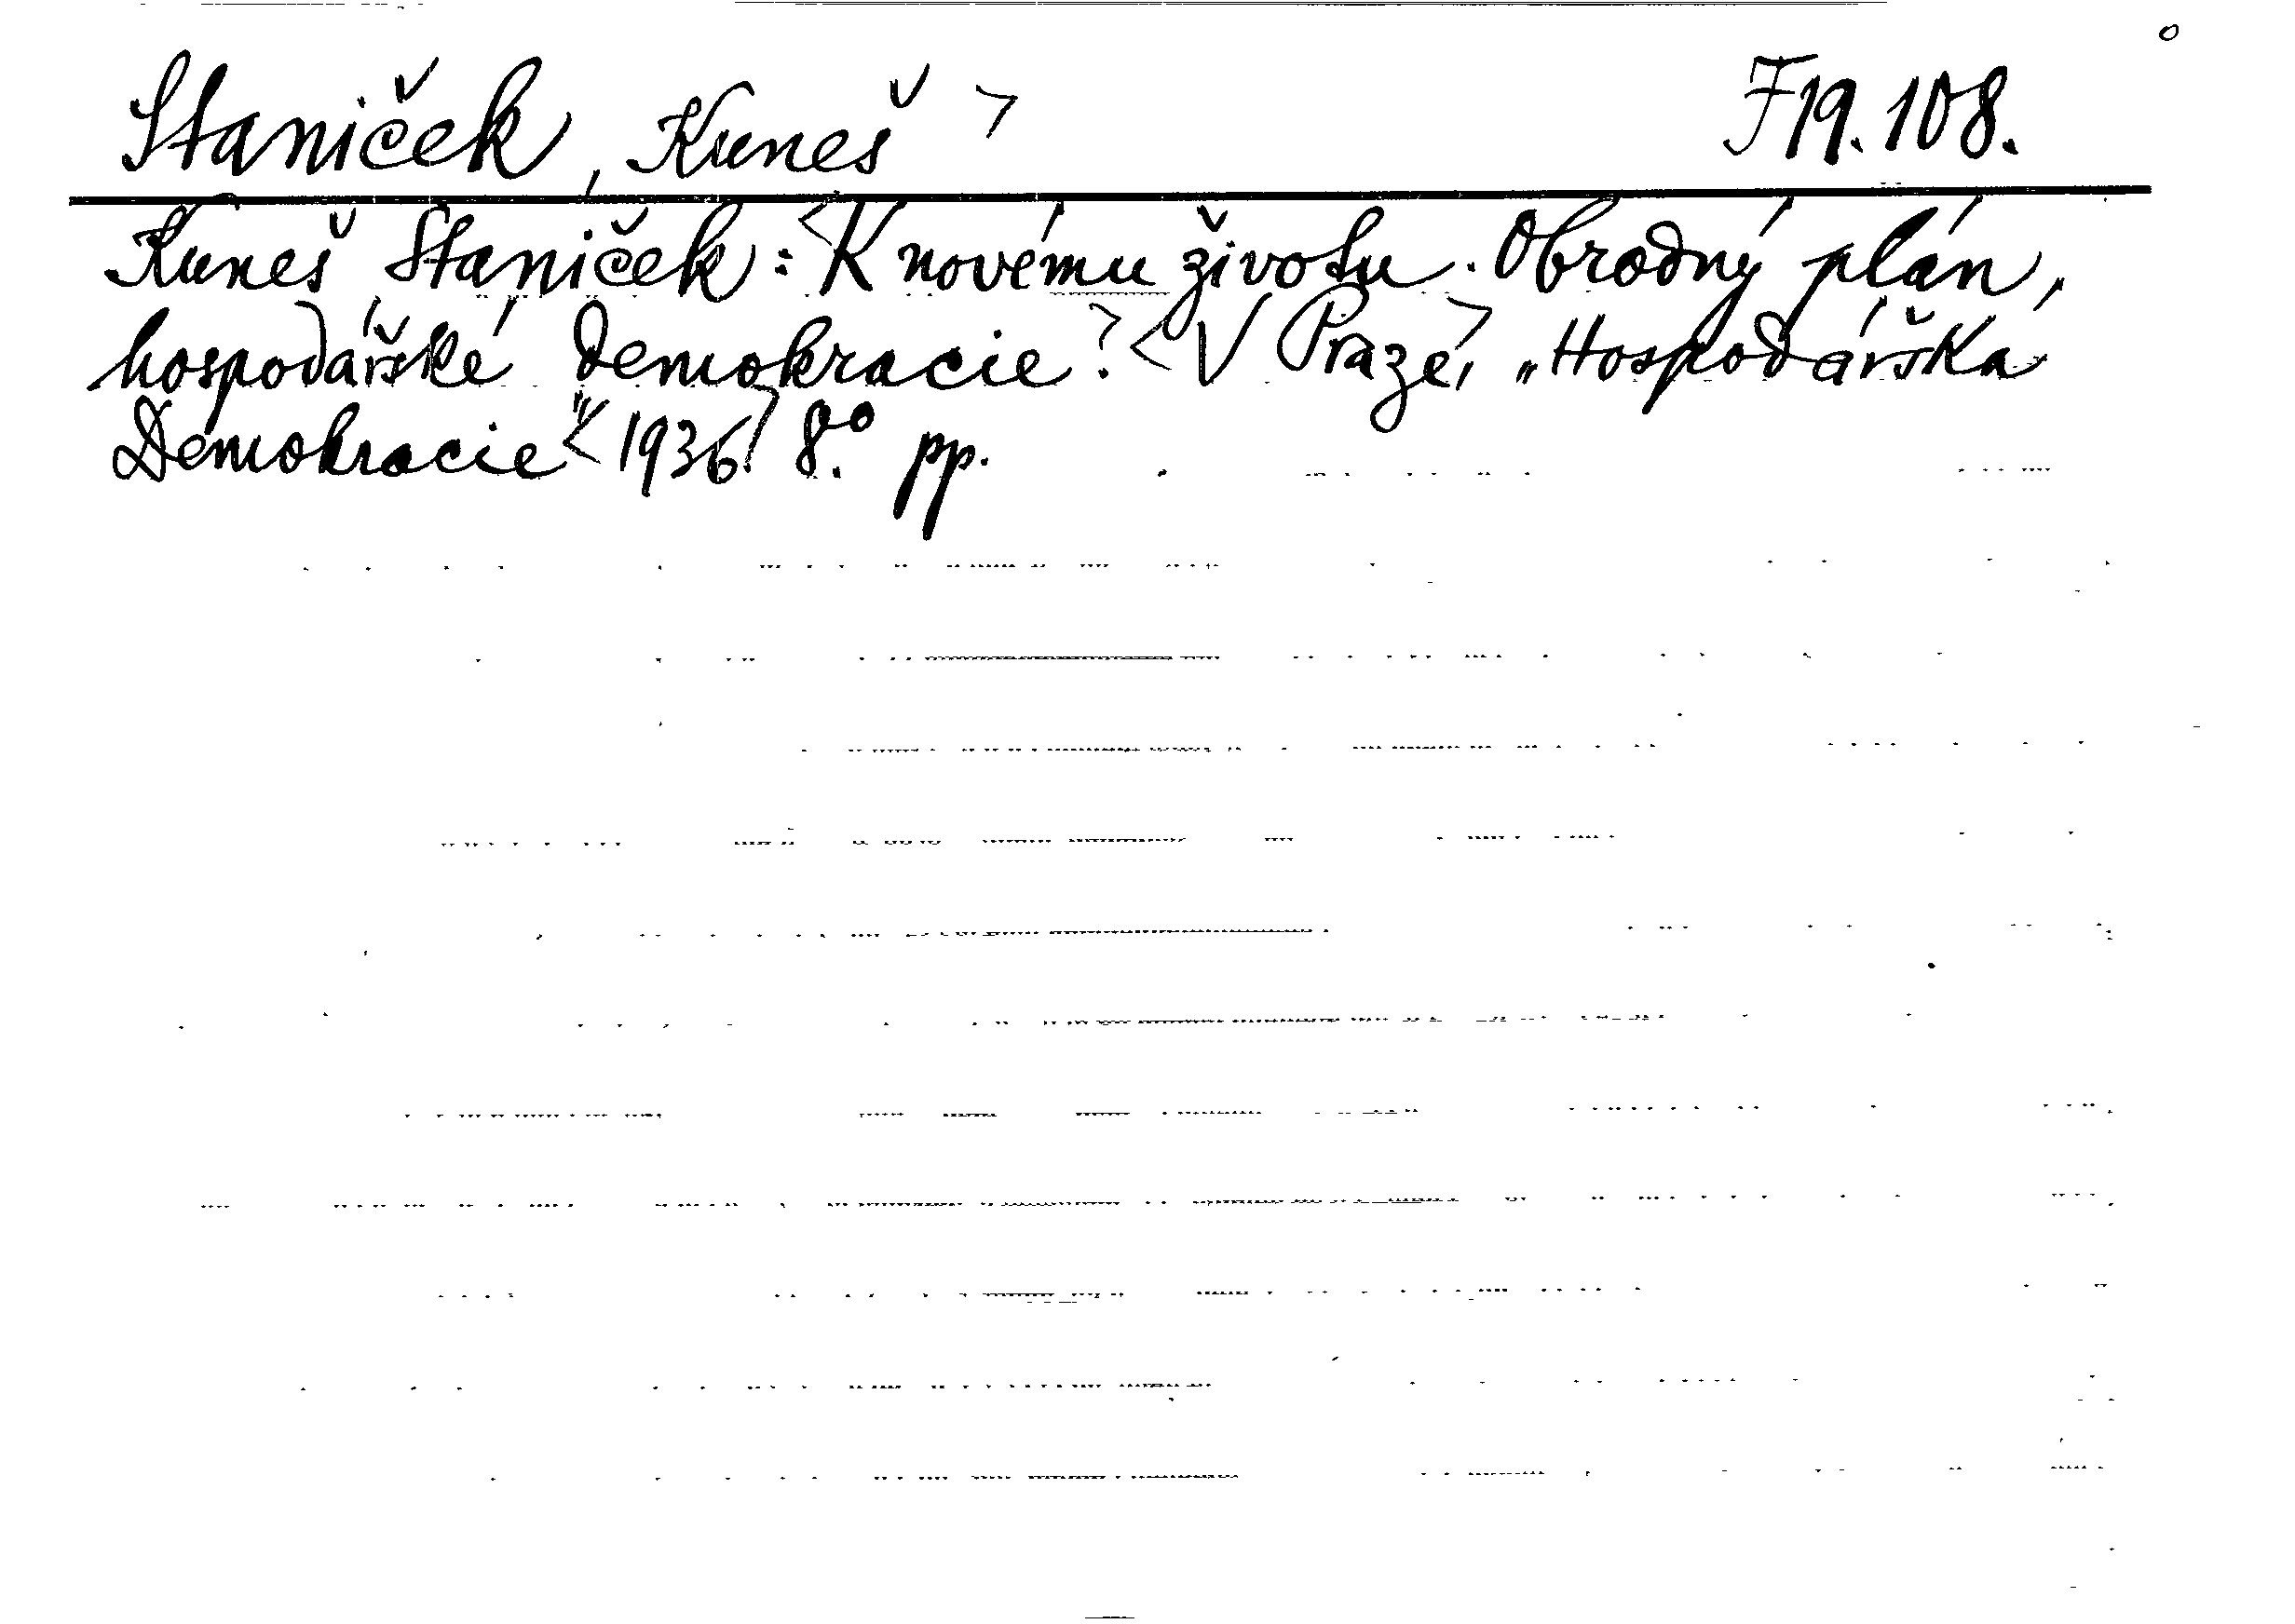 Staniček, Kuneš > F 19.108.
Kuneš Staniček: <K novému životu. Obrodný plán,
hospodářské demokracie.> <V Praze,> „Hospodářska
Demokracie" <1936.> 8.° pp.